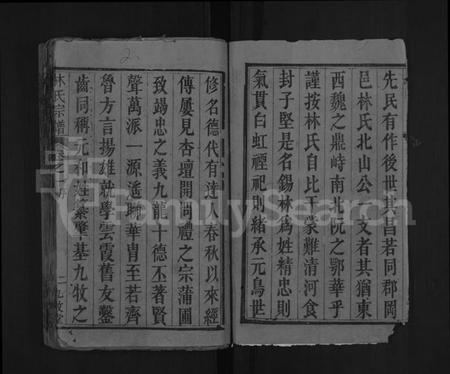 先民有作後世其昌若同郡岡
邑林氏北山公一文者其猶東
西魏之鼎峙南北阮之鄂華乎
謹按林氏自比干蒙難清河食
封子堅是名錫林爲姓精忠則
氣貫白虹禋祀則緒承元鳥世
修名德代有達人春秋以來經
傳屢見杏壇開問禮之宗蒲圃
致竭忠之義九龍十德丕著賢
聲萬派一源遙聯華胄至若齊
魯方言揚雄就學雲霞舊友鑿
齒同稱元和姓纂肇基九牧之
林氏宗譜
二
FamilySearch